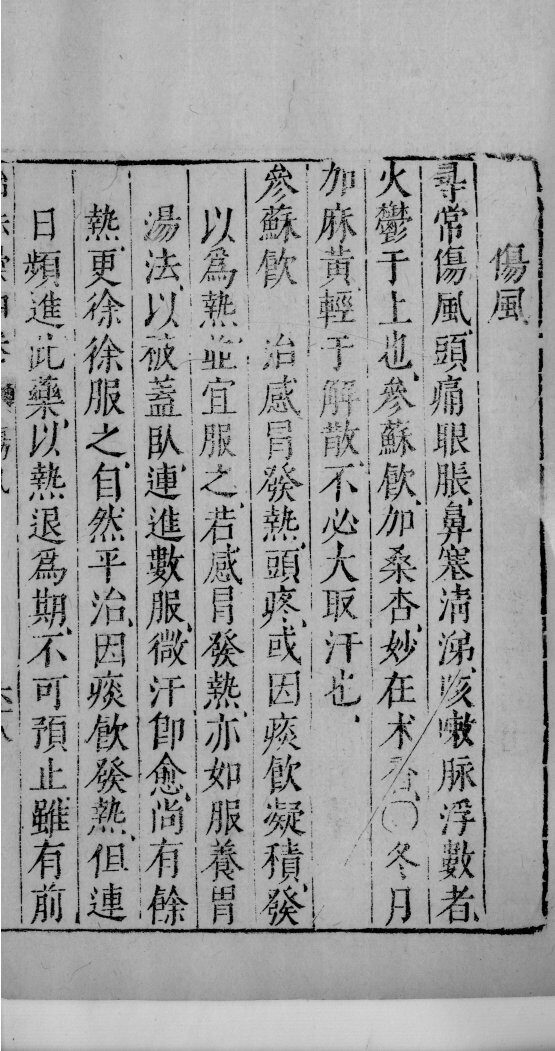 傷風
尋常傷風、頭痛眼脹、鼻塞清涕、咳嗽脉浮數者、
火鬱于上也、參蘇飲、加桑杏、妙在木香、〇冬月
加麻黃、輕于解散、不必大取汗也、
參蘇飲　治感冒發熱、頭疼、或因痰飲凝積、發
以爲熱、並宜服之、若感冒發熱、亦如服養胃
湯法、以被蓋臥、連進數服、微汗卽愈、尚有餘
熱、更徐徐服之、自然平治、因痰飲發熱、但連
日頻進此藥、以熱退爲期、不可預止、雖有前
傷風